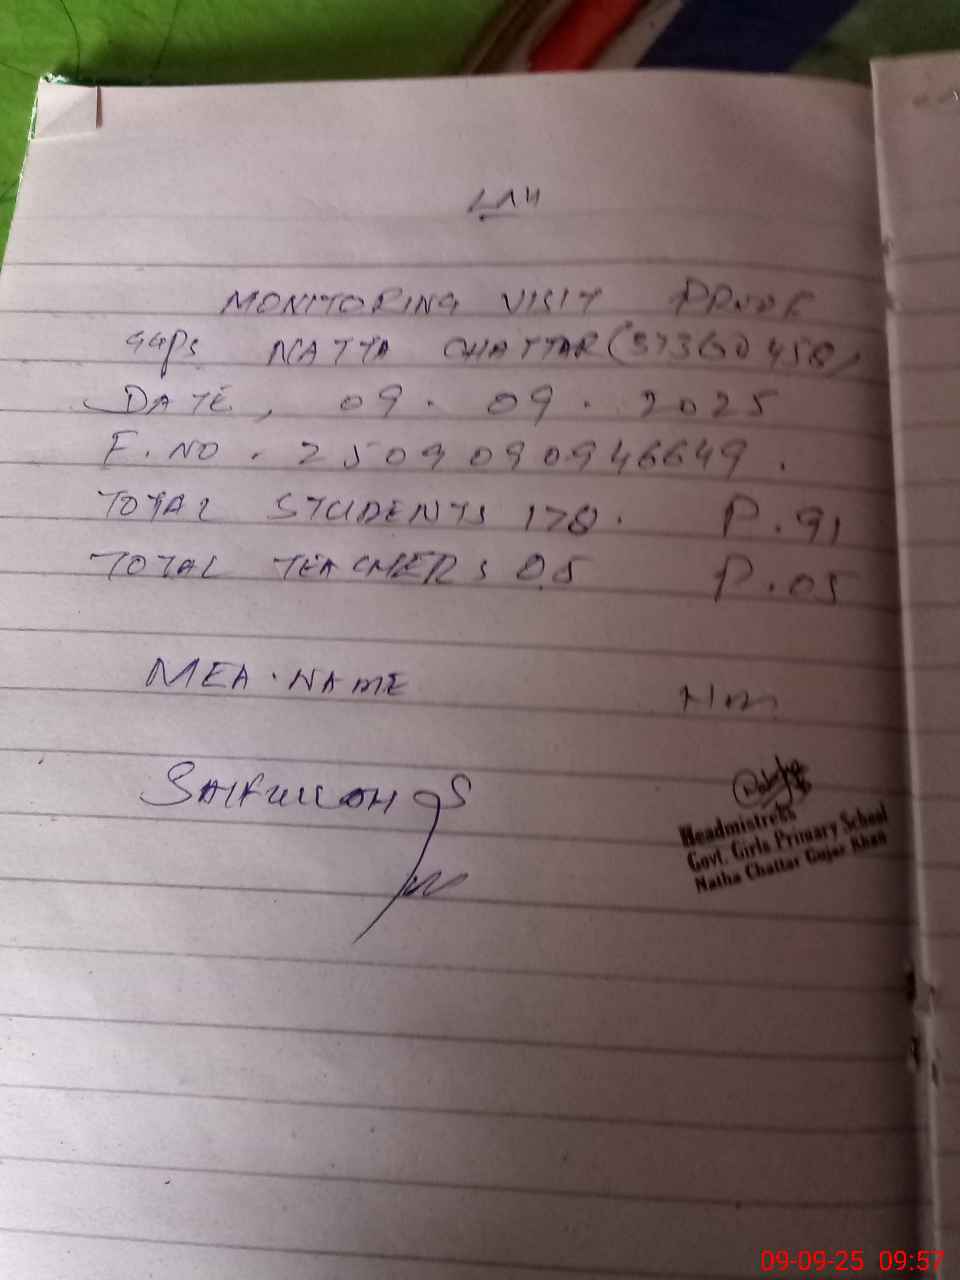 MONITORING VISIT PROOF
GGPS NATTA CHATTAR (37360458)
DATE, 09.09.2025
F.NO. 2509090946649.
TOTAL STUDENTS 178. P.91
TOTAL TEACHERS 05 P.05
MEA.NAME
Hm
SAIFULLAH
Headmistress
Govt. Girls Primary School
Natha Chattar Gujar Khan
09-09-25 09:57